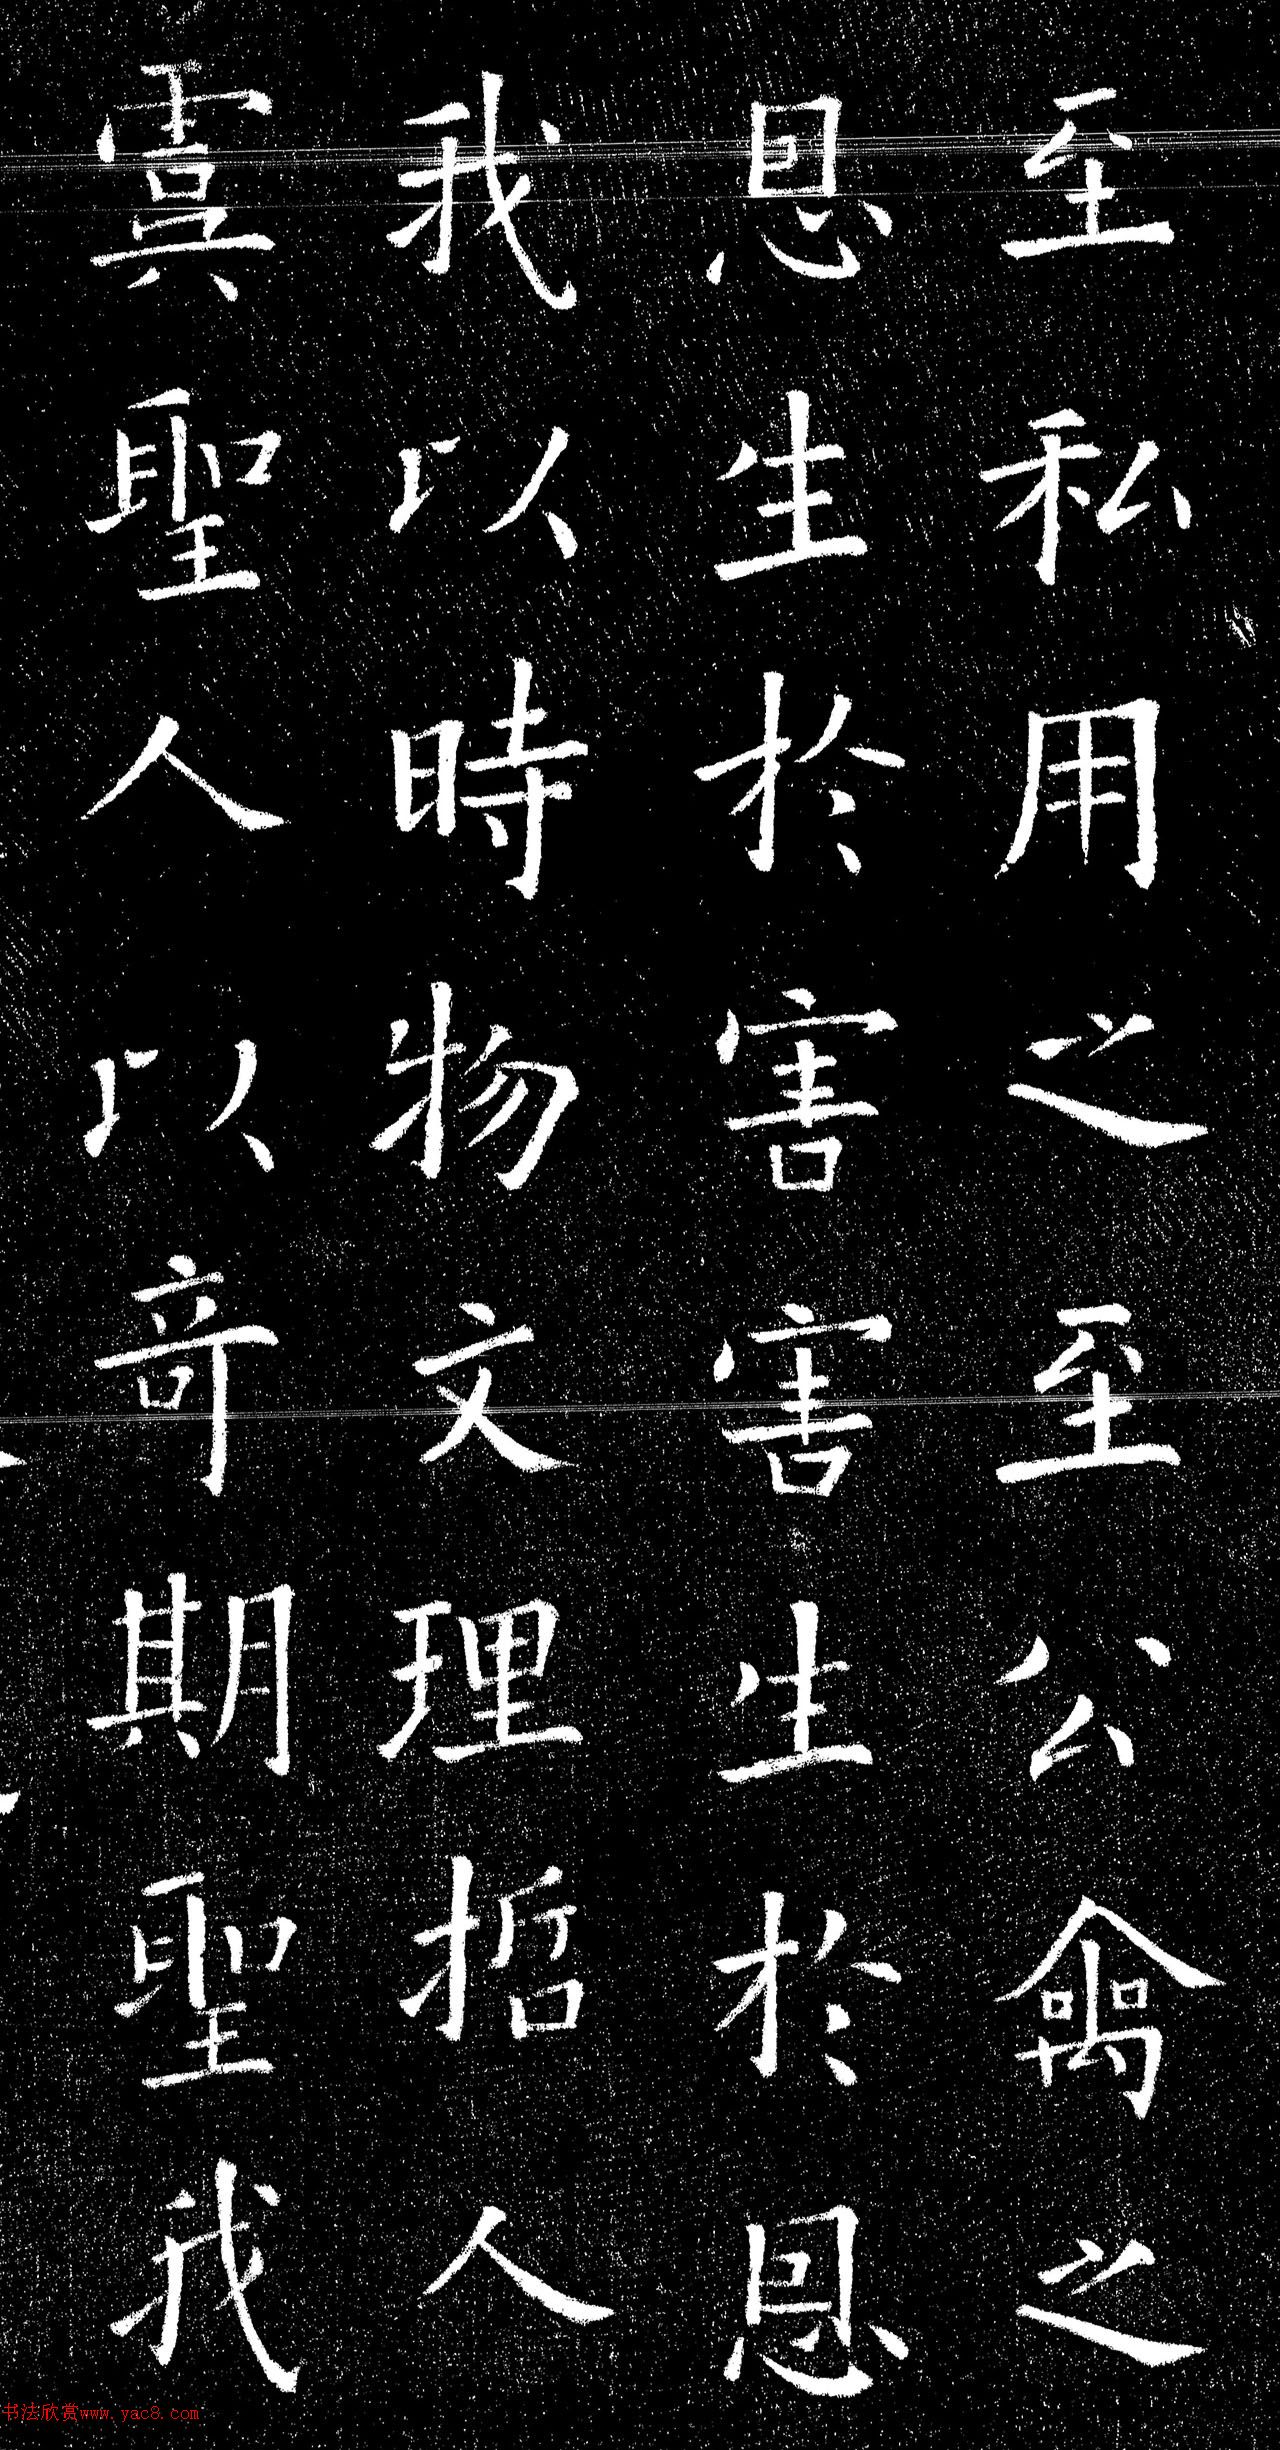 至私用之至公禽之
恩生於害害生於恩
我以時物文理哲人
虞聖人以奇期聖我
书法欣赏www.yac8.com